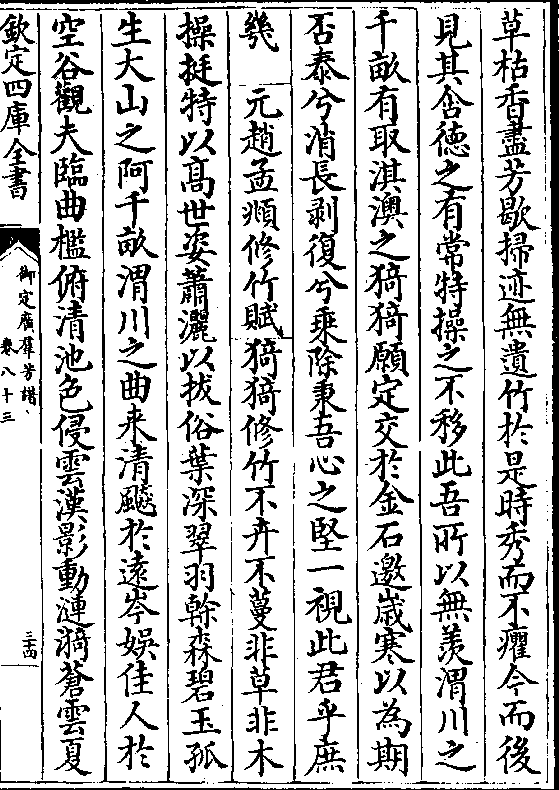 草枯香盡芳歇掃迹無遺竹於是時秀而不癯今而後
見其含德之有常特操之不移此吾所以無羨渭川之
千畝有取淇澳之猗猗願定交於金石邀嵗寒以為期
否泰兮消長剥復兮乗除秉吾心之堅一視此君乎庶
㡬　元趙孟頫修竹賦猗猗修竹不卉不蔓非草非木
操挺特以髙世姿蕭灑以拔俗葉深翠羽榦森碧玉孤
生大山之阿千畝渭川之曲来清飈於遠岑娛佳人於
空谷觀夫臨曲檻俯清池色侵雲漢影動漣漪蒼雲夏
欽定四庫全書
御定廣羣芳譜
卷八十三
三十四